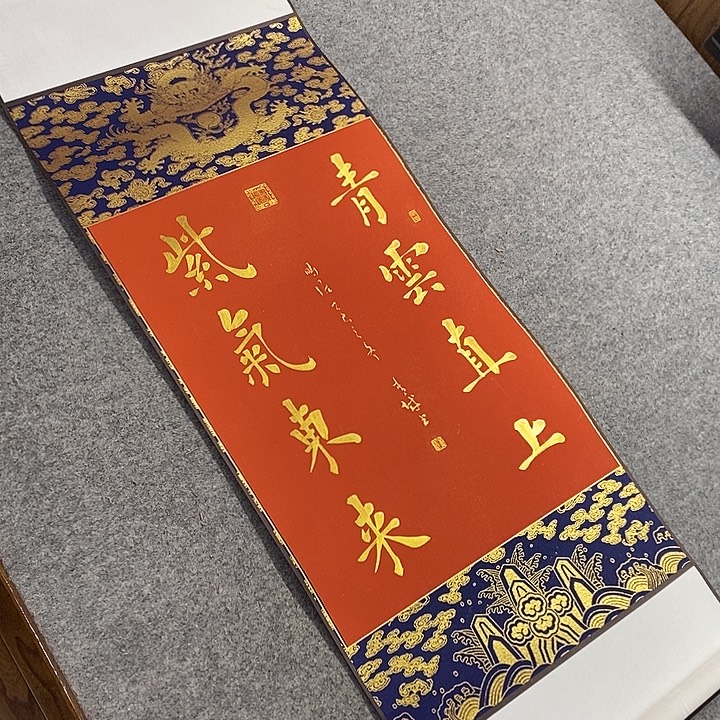 青雲直上
紫氣東来